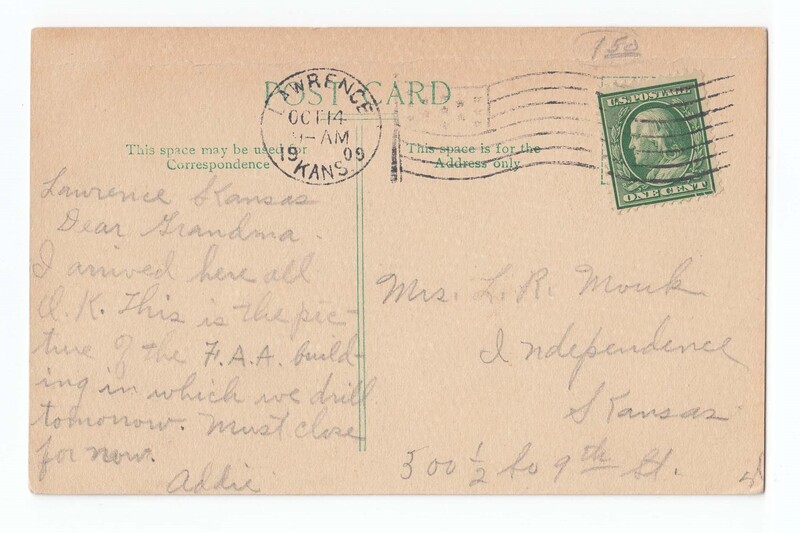 150
POST CARD
LAWRENCE
OCT 14
9-AM
1909
KANS.
U.S. POSTAGE
ONE CENT
This space may be used for
Correspondence
This space is for the
Address only
Lawrence Kansas
Dear Grandma.
I arrived here all
O.K. This is the pic-
ture of the F.A.A. build-
ing in which we drill
tomorrow. Must close
for now.
Addie
Mrs. L. R. Monk
Independence
Kansas
500 1/2 So 9th St.